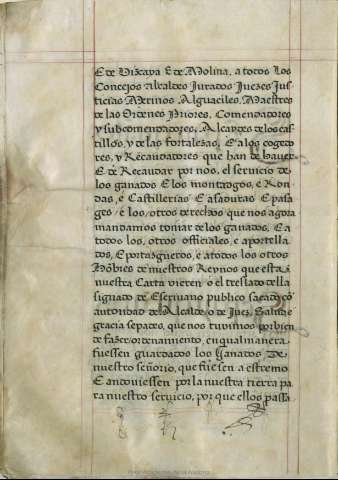 E de Vizcaya E de Molina, a todos los
Concejos Alcaldes Jurados Juezes Jus
ticias Merinos Alguaciles, Maestres
de las Ordenes Priores, Comendadores
y subcomendadores, Alcaydes de los cas
tillos, y de las fortalezas, E a los cogedo
res, y Recaudadores que han de haver
E de Recaudar por nos, el servicio de
los ganados E los montazgos, e Ron
das, e Castillerias E asaduras E pasa
ges, e los, otros derechos que nos agora
mandamos tomar de los ganados, E a
todos los, otros officiales, e aportella
dos, E portazgueros, e a todos los otros
Hōbres de nuestros Reynos que esta
nuestra Carta vieren o el treslado della
signado de Escrivano publico sacado cō
autoridad de Alcalde o de Juez, Salud e
gracia sepades, que nos tuvimos por bien
de fazer ordenamiento, en qual manera
fuessen guardados los Ganados De
nuestro señorio, que fuesen a estremo
E andoviessen por la nuestra tierra pa
ra nuestro servicio, por que ellos passa